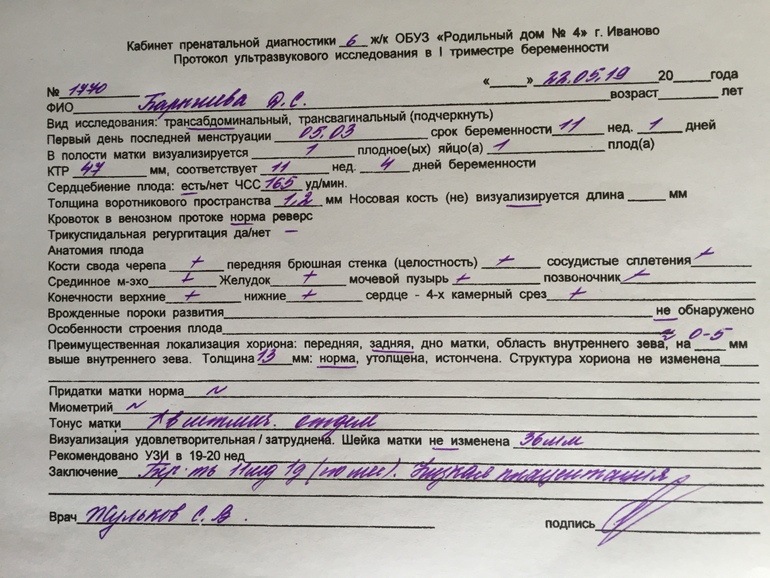 Кабинет пренатальной диагностики 6 ж/к ОБУЗ «Родильный дом № 4» г. Иваново
Протокол ультразвукового исследования в I триместре беременности
№ 1770 «____» 22.05.19 20____года
ФИО Д.С. возраст____лет
Вид исследования: трансабдоминальный, трансвагинальный (подчеркнуть)
Первый день последней менструации 05.03 срок беременности 11 нед. 1 дней
В полости матки визуализируется 1 плодное(ых) яйцо(а) 1 плод(а)
КТР 47 мм, соответствует 11 нед. 4 дней беременности
Сердцебиение плода: есть/нет ЧСС 165 уд/мин.
Толщина воротникового пространства 1,2 мм Носовая кость (не) визуализируется длина____мм
Кровоток в венозном протоке норма реверс
Трикуспидальная регургитация да/нет –
Анатомия плода
Кости свода черепа + передняя брюшная стенка (целостность) + сосудистые сплетения +
Срединное м-эхо + Желудок + мочевой пузырь + позвоночник +
Конечности верхние + нижние + сердце - 4-х камерный срез +
Врожденные пороки развития____не обнаружено
Особенности строения плода____
Преимущественная локализация хориона: передняя, задняя, дно матки, область внутреннего зева, на 0-5 мм
выше внутреннего зева. Толщина 13 мм: норма, утолщена, истончена. Структура хориона не изменена____
Придатки матки норма ~
Миометрий ~
Тонус матки в отдел
Визуализация удовлетворительная / затруднена. Шейка матки не изменена 36мм
Рекомендовано УЗИ в 19-20 нед____
Заключение Бер-ть 11нед 1д Низкая плацентация
Врач Жульков С.В. подпись____